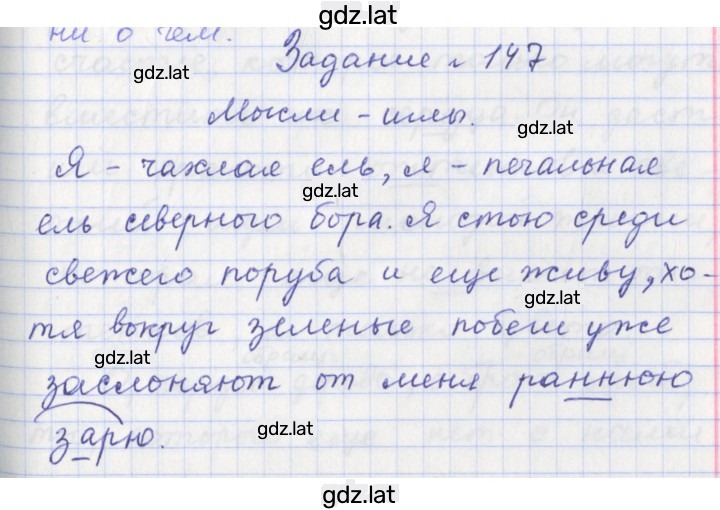 gdz.lat
ни о чем.
Задание № 147
gdz.lat
Мысли - иглы.
gdz.lat
Я - чахлая ель, я - печальная
gdz.lat
ель северного бора. Я стою среди
свежего поруба и еще живу, хо-
gdz.lat
тя вокруг зеленые побеги уже
gdz.lat
заслоняют от меня раннюю
зарю.
gdz.lat
gdz.lat